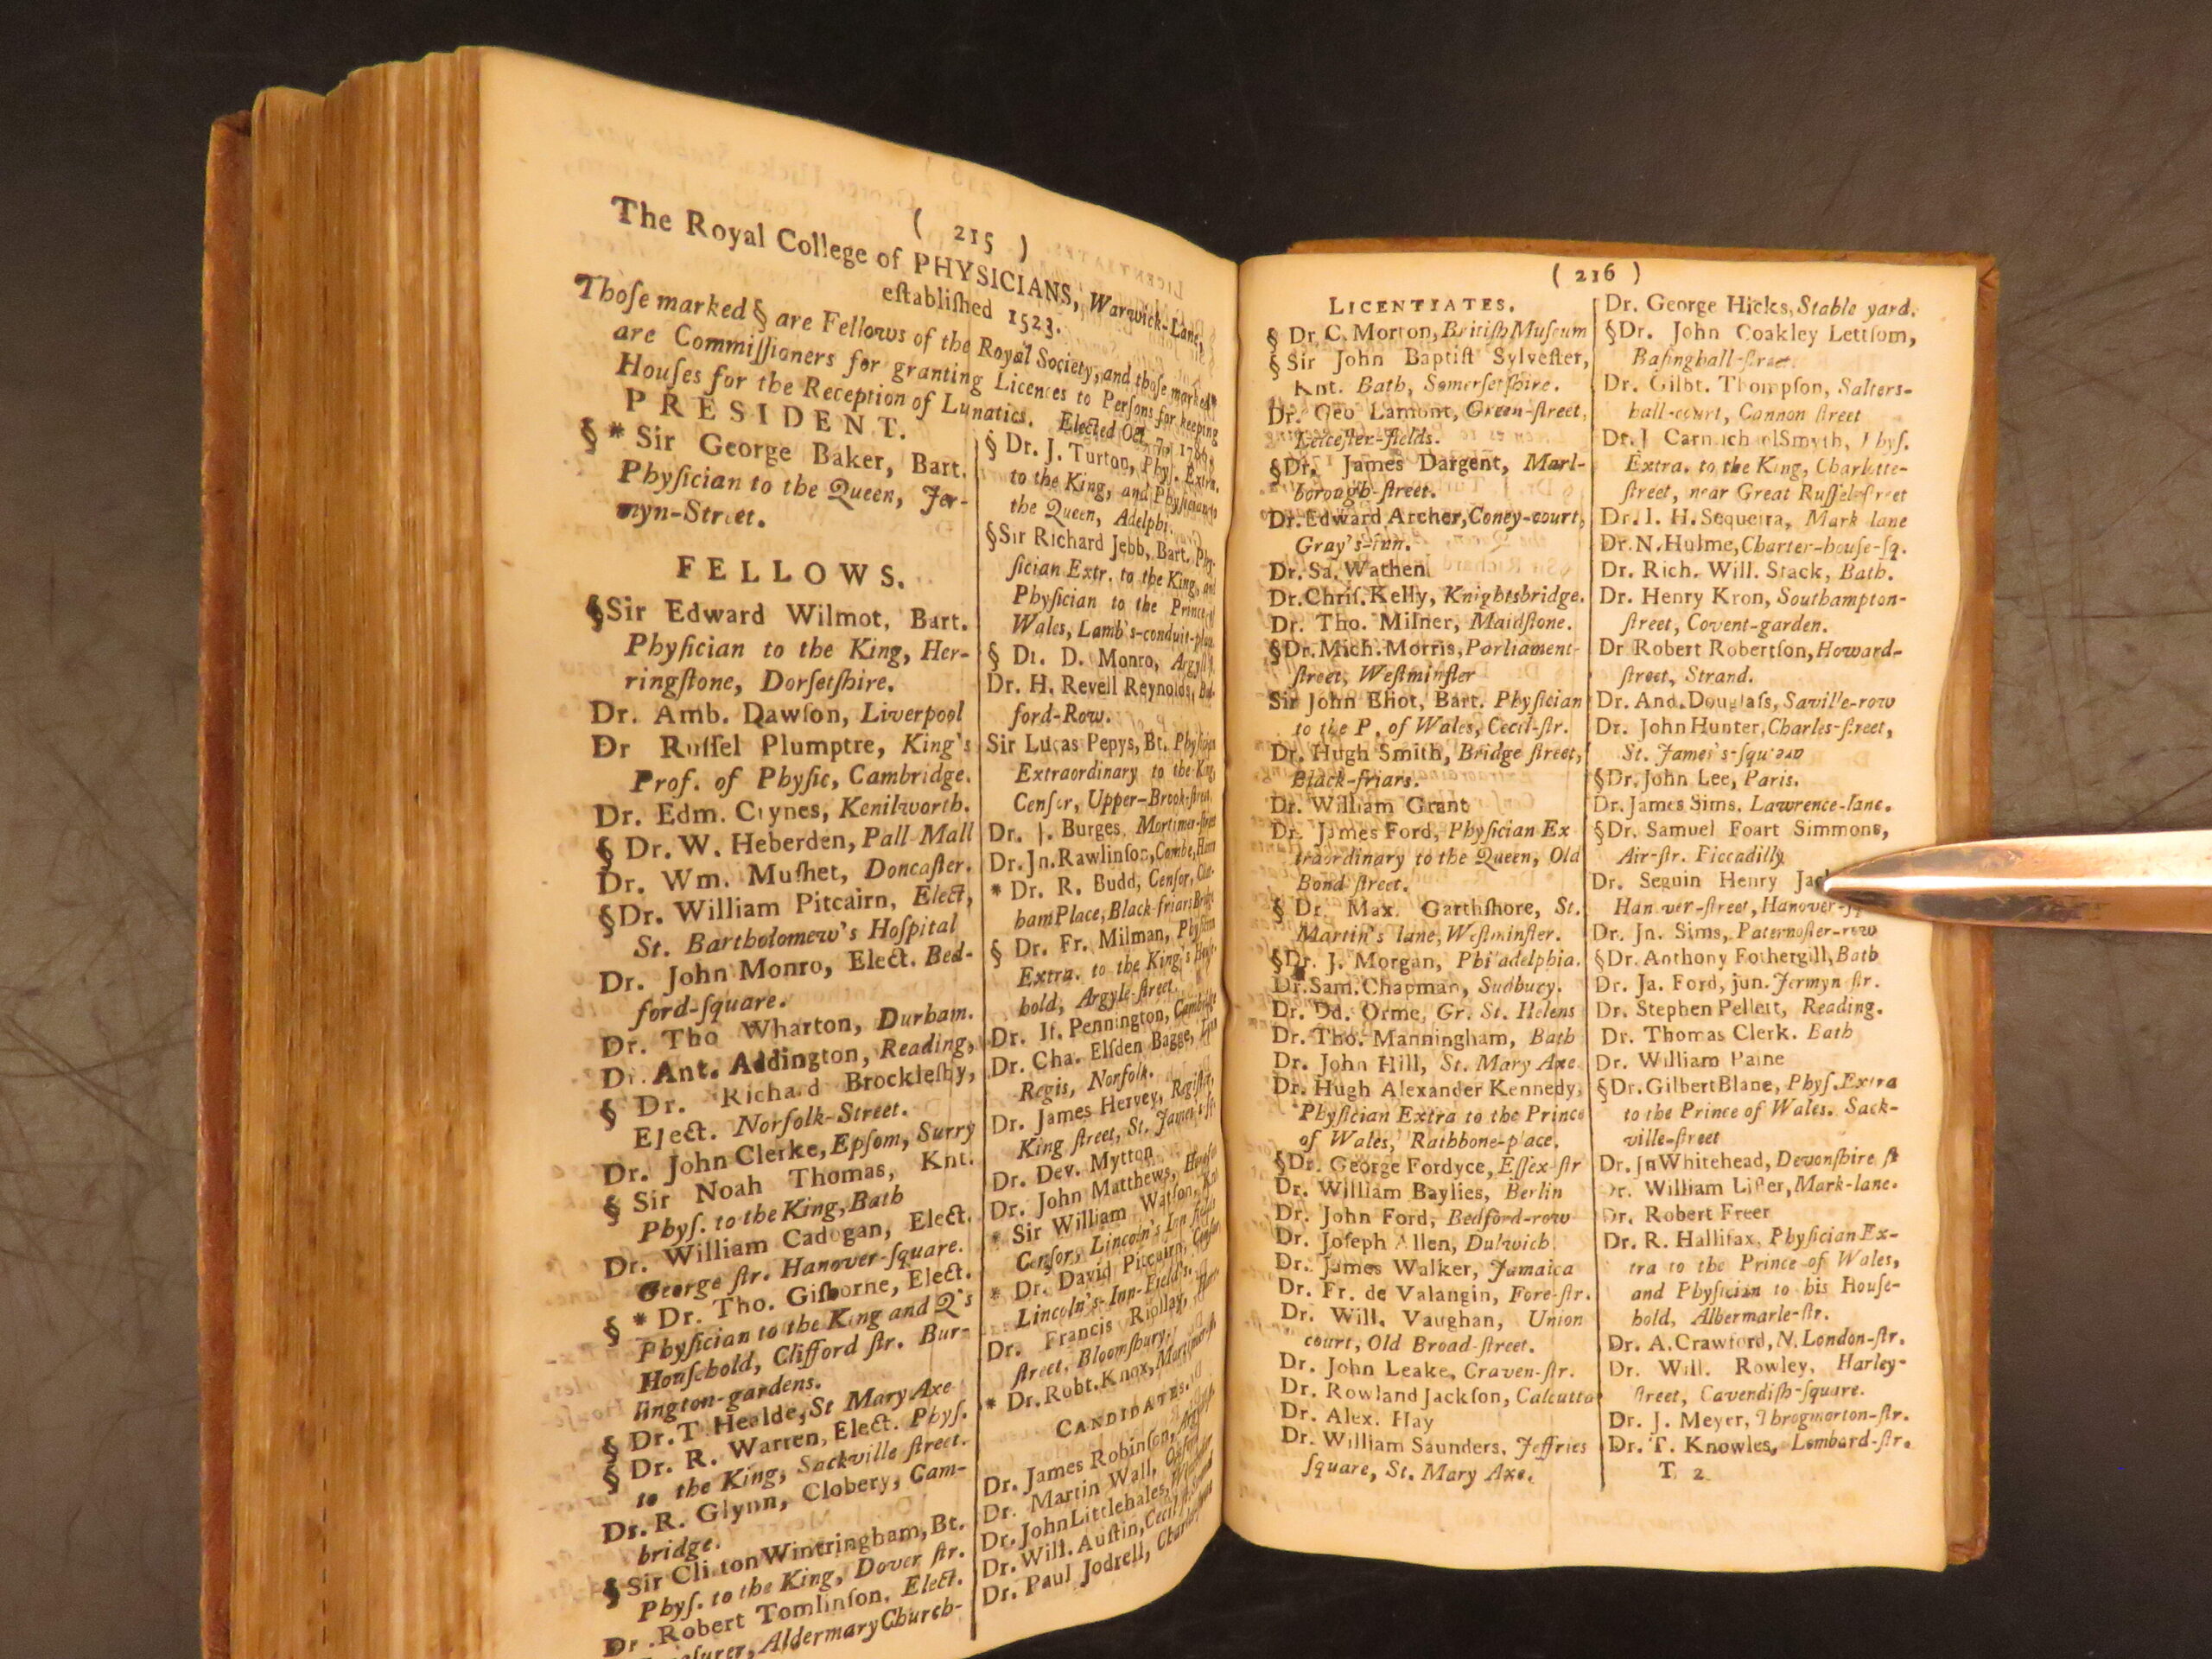 ( 215 )
The Royal College of PHYSICIANS, Warwick-Lane,
eſtabliſhed 1523.
Thoſe marked § are Fellows of the Royal Society, and thoſe marked *
are Commiſſioners for granting Licences to Perſons for keeping
Houſes for the Reception of Lunatics. Elected Oct. 1786.
PRESIDENT.
§ * Sir George Baker, Bart.
Phyſician to the Queen, Jer-
myn-Street.
FELLOWS.
§Sir Edward Wilmot, Bart.
Phyſician to the King, Her-
ringſtone, Dorſetſhire.
Dr. Amb. Dawſon, Liverpool
Dr Ruſſel Plumptre, King's
Prof. of Phyſic, Cambridge.
Dr. Edm. Crynes, Kenilworth.
§ Dr. W. Heberden, Pall-Mall
Dr. Wm. Muſhet, Doncaſter.
§Dr. William Pitcairn, Elect,
St. Bartholomew's Hoſpital
Dr. John Monro, Elect. Bed-
ford-ſquare.
Dr. Tho Wharton, Durham.
Dr. Ant. Addington, Reading,
§ Dr. Richard Brockleſby,
Elect. Norfolk-Street.
Dr. John Clerke, Epſom, Surry
§ Sir Noah Thomas, Knt.
Phyſ. to the King, Bath
Dr. William Cadogan, Elect.
George ſtr. Hanover-ſquare.
§ * Dr. Tho. Giſborne, Elect.
Phyſician to the King and Q's
Houſehold, Clifford ſtr. Bur-
lington-gardens.
§ Dr. T. Healde, St Mary Axe
§ Dr. R. Warren, Elect. Phyſ.
to the King, Sackville ſtreet.
Dr. R. Glynn, Clobery, Cam-
bridge.
§Sir Clifton Wintringham, Bt.
Phyſ. to the King, Dover ſtr.
Dr. Robert Tomlinſon, Elect.
Aldermary Church-
§ Dr. J. Turton, Phyſ. Extra.
to the King, and Phyſician to
the Queen, Adelphi.
§Sir Richard Jebb, Bart. Phy-
ſician Extr. to the King, and
Phyſician to the Prince of
Wales, Lamb's-conduit-place
§ Dr. D. Monro, Argyll
Dr. H. Revell Reynolds, Bed-
ford-Row.
Sir Lucas Pepys, Bt. Phyſician
Extraordinary to the King,
Cenſor, Upper-Brook-ſtreet
Dr. J. Burges, Mortimer-ſtreet
Dr. Jn. Rawlinſon, Combe,
* Dr. R. Budd, Cenſor, Cha-
ham Place, Black-friars Bridge
§ Dr. Fr. Milman, Phyſician
Extra. to the King's Houſe-
hold, Argyle-ſtreet.
Dr. If. Pennington, Cambridge
Dr. Cha. Elſden Bagge, Lyn
Regis, Norfolk.
Dr. James Hervey, Regiſter,
King ſtreet, St. James's-
Dr. Dev. Mytton
Dr. John Matthews,
* Sir William Watſon, Knt
Cenſor, Lincoln's Inn Fields
* Dr. David Pitcairn, Cenſor,
Lincoln's-Inn-Fields.
Dr. Francis Riollay,
ſtreet, Bloomſbury.
* Dr. Robt. Knox, Mortimer-ſtr
CANDIDATES.
Dr. James Robinſon,
Dr. Martin Wall, Oxford
Dr. John Littlehales, Wincheſter
Dr. Will. Auſtin, Cecil
Dr. Paul Jodrell,
( 216 )
LICENTIATES.
§ Dr. C. Morton, Britiſh Muſeum
§ Sir John Baptiſt Sylveſter,
Knt. Bath, Somerſetſhire.
Dr. Geo Lamont, Green-ſtreet,
Leiceſter-fields.
§Dr. James Dargent, Marl-
borough-ſtreet.
Dr. Edward Archer, Coney-court,
Gray's-inn.
Dr. Sa. Wathen
Dr. Chriſ. Kelly, Knightsbridge.
Dr. Tho. Milner, Maidſtone.
§Dr. Mich. Morris, Parliament-
ſtreet, Weſtminſter
Sir John Eliot, Bart. Phyſician
to the P. of Wales, Cecil-ſtr.
Dr. Hugh Smith, Bridge ſtreet,
Black-friars.
Dr. William Grant
Dr. James Ford, Phyſician Ex
traordinary to the Queen, Old
Bond ſtreet.
§ Dr. Max. Garthſhore, St.
Martin's lane, Weſtminſter.
§Dr. J. Morgan, Philadelphia.
Dr. Sam. Chapman, Sudbury.
Dr. Dd. Orme, Gr. St. Helens
Dr. Tho. Manningham, Bath
Dr. John Hill, St. Mary Axe
Dr. Hugh Alexander Kennedy,
Phyſician Extra to the Prince
of Wales, Rathbone-place.
§Dr. George Fordyce, Eſſex-ſtr
Dr. William Baylies, Berlin
Dr. John Ford, Bedford-row
Dr. Joſeph Allen, Dulwich
Dr. James Walker, Jamaica
Dr. Fr. de Valangin, Fore-ſtr.
Dr. Will. Vaughan, Union
court, Old Broad-ſtreet.
Dr. John Leake, Craven-ſtr.
Dr. Rowland Jackſon, Calcutta
Dr. Alex. Hay
Dr. William Saunders, Jeffries
ſquare, St. Mary Axe.
Dr. George Hicks, Stable yard.
§Dr. John Coakley Lettſom,
Baſinghall-ſtreet
Dr. Gilbt. Thompſon, Salters-
hall-court, Cannon ſtreet
Dr. J Carmichael Smyth, Phyſ.
Extra. to the King, Charlotte-
ſtreet, near Great Ruſſel-ſtreet
Dr. I. H. Sequeira, Mark lane
Dr. N. Hulme, Charter-houſe-ſq.
Dr. Rich. Will. Stack, Bath.
Dr. Henry Kron, Southampton-
ſtreet, Covent-garden.
Dr Robert Robertſon, Howard-
ſtreet, Strand.
Dr. And. Douglaſs, Saville-row
Dr. John Hunter, Charles-ſtreet,
St. James's-ſquare
§Dr. John Lee, Paris.
Dr. James Sims, Lawrence-lane.
§Dr. Samuel Foart Simmons,
Air-ſtr. Piccadilly
Dr. Seguin Henry
Hanover-ſtreet,
Dr. Jn. Sims, Paternoſter-row
§Dr. Anthony Fothergill, Bath
Dr. Ja. Ford, jun. Jermyn ſtr.
Dr. Stephen Pellett, Reading.
Dr. Thomas Clerk. Bath
Dr. William Paine
§Dr. Gilbert Blane, Phyſ. Extra
to the Prince of Wales. Sack-
ville-ſtreet
Dr. Jn Whitehead, Devonſhire ſt
Dr. William Liſter, Mark-lane.
Dr. Robert Freer
Dr. R. Hallifax, Phyſician Ex-
tra to the Prince of Wales,
and Phyſician to his Houſe-
hold, Albermarle-ſtr.
Dr. A. Crawford, N. London-ſtr.
Dr. Will. Rowley, Harley-
ſtreet, Cavendiſh-ſquare.
Dr. J. Meyer, Throgmorton-ſtr.
Dr. T. Knowles, Lombard-ſtr.
T 2